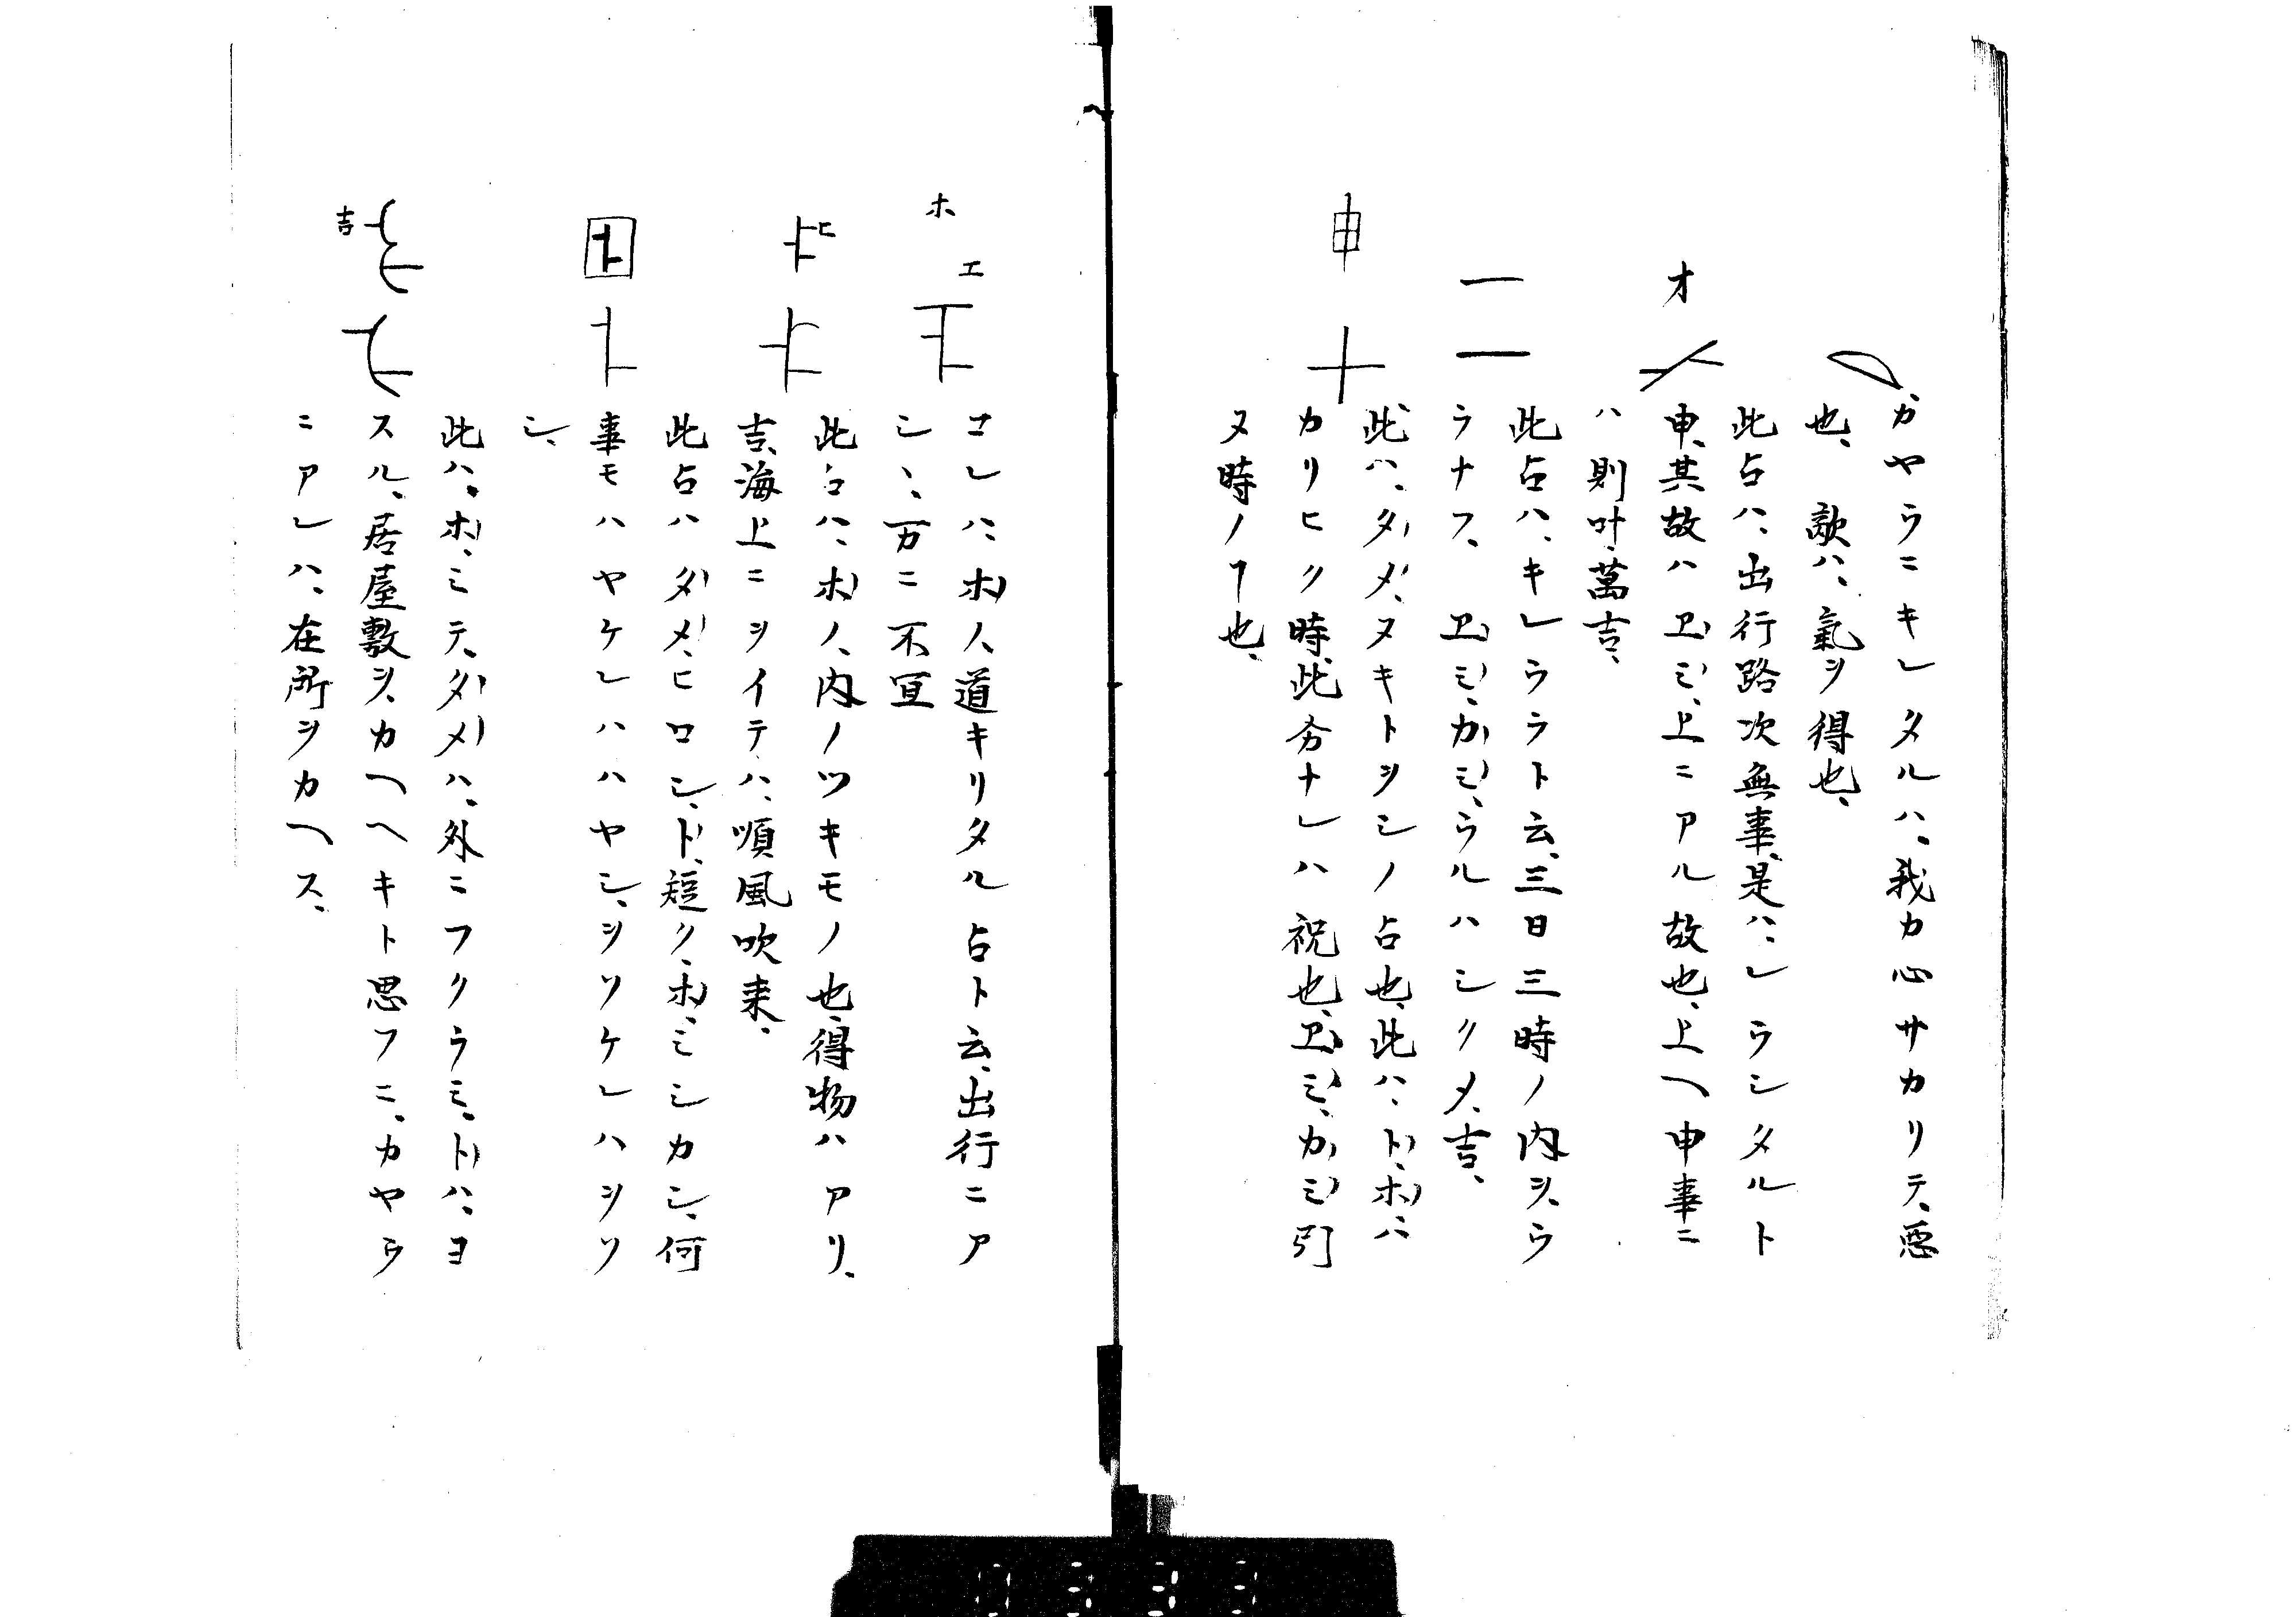 カヤウニキレタルハ、我カ心サカリテ、悪
也、敵ハ、氣ヲ得也、
オ
此占ハ、出行路次無事、是ハ、レウシタルト
申、其故ハ
上ニアル故也、上ヘ申事ニ
ハ則叶、萬吉、
此占ハ、キレウラト云、三日三時ノ内ヲ、ウ
ラナフ、
ウルハシクメ、吉、
申
此ハ、タメ、ヌキトヲシノ占也、此ハ、ト、ホ、ニ
カリヒク時、此
ナレハ祝也、
引
ヌ時ノヿ也、
ホ
エ
コレハ、ホノ道キリタル占ト云、出行ニア
シヽ、万ニ不宜
ヒ
此占ハ、ホノ内ノツキモノ也、得物ハアリ、
吉、海上ニヲイテハ、順風吹来、
此占ハタメ、ヒロシ、ト、短ク、ホ、ミシカシ、何
事モハヤケレハハヤシ、ヲソケレハヲソ
シ、
吉
此ハ、ホ、ミテ、タメハ、外ニフクラミ、トハ、ヨ
スル、居屋敷ヲ、カヘヘキト思フニ、カヤウ
ニアレハ、在所ヲカヘス、